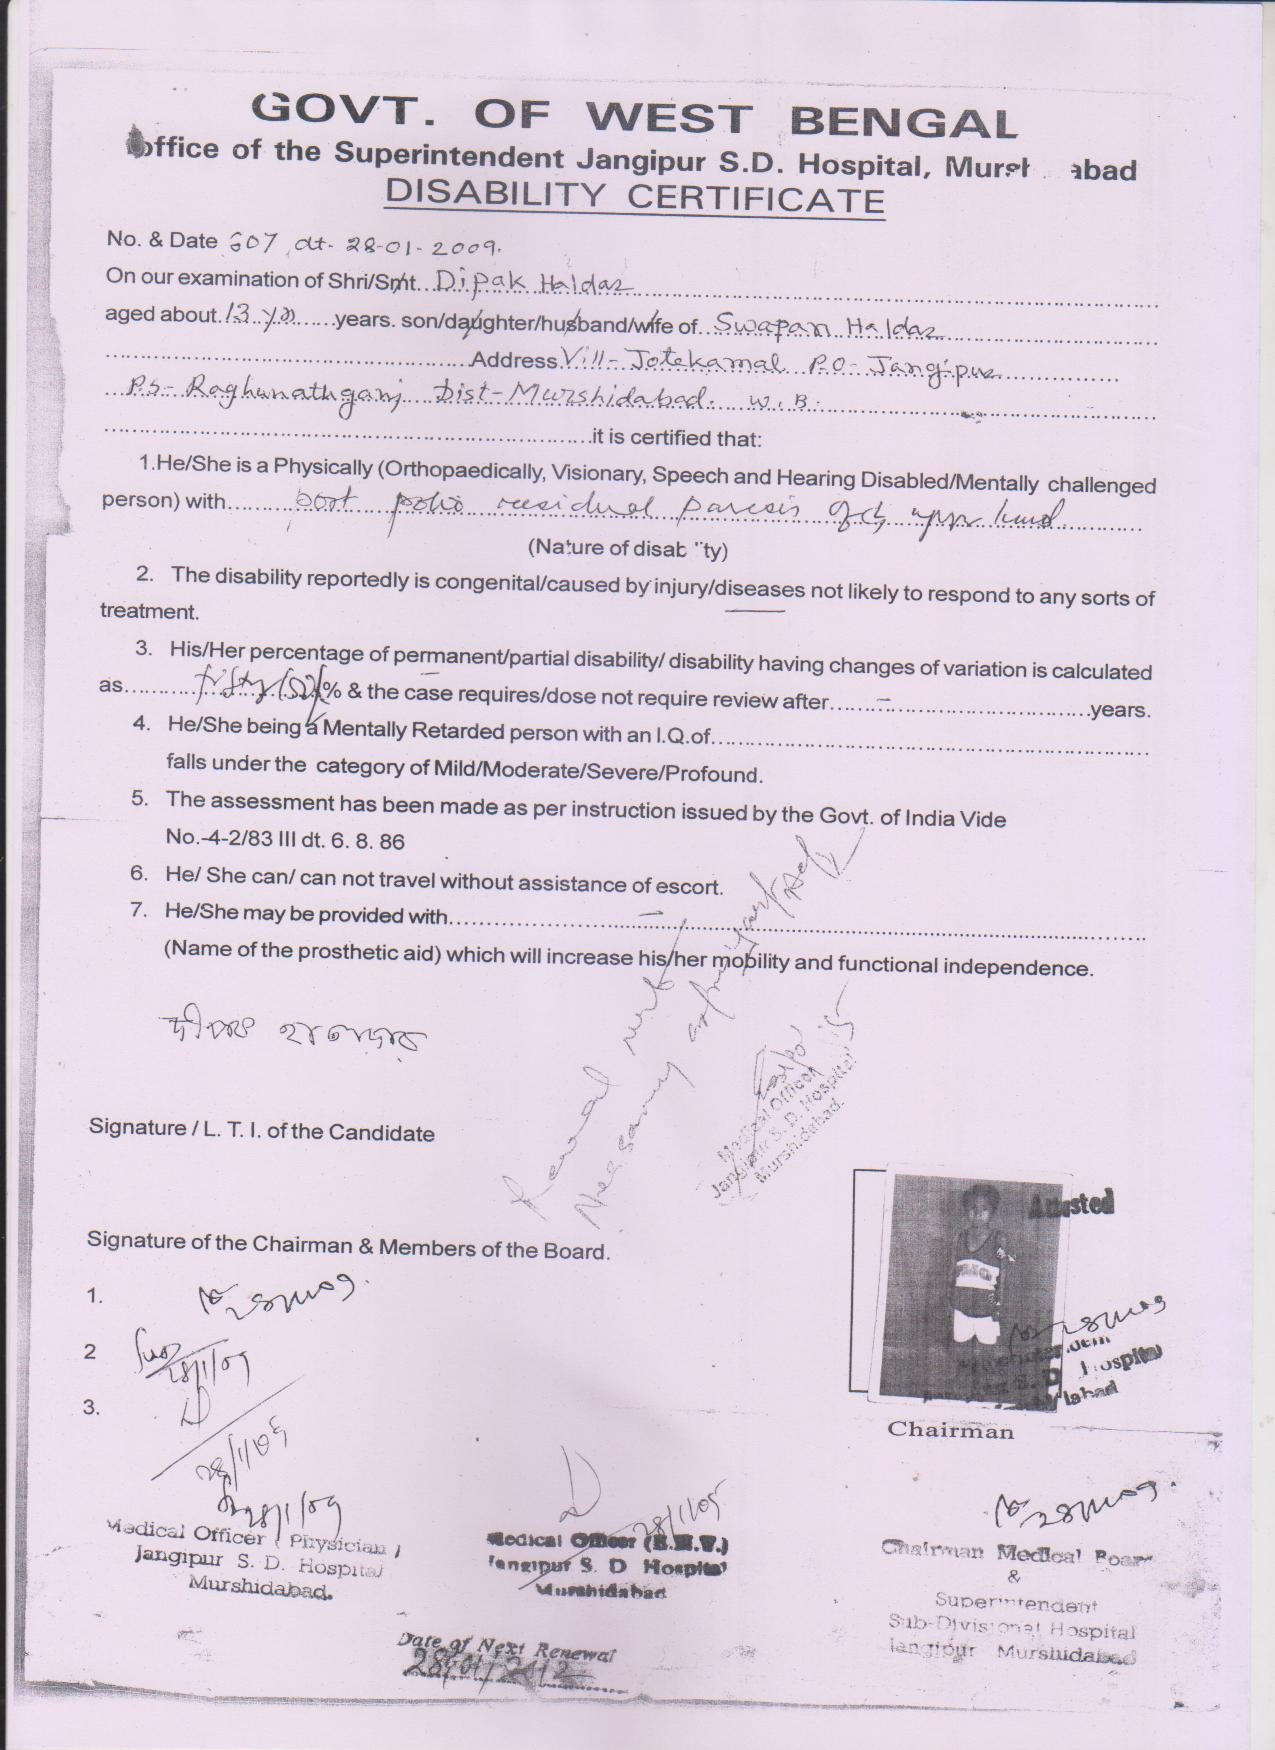 GOVT. OF WEST BENGAL
office of the Superintendent Jangipur S.D. Hospital, Mursh abad
DISABILITY CERTIFICATE
No. & Date 607 dt- 28-01-2009.
On our examination of Shri/Smt. Dipak Haldar
aged about 13 yrs years. son/daughter/husband/wife of Swapan Haldar
Address Vill- Jotekamal P.O- Jangipur
P.S- Raghunathganj Dist- Murshidabad. W.B.
it is certified that:
1.He/She is a Physically (Orthopaedically, Visionary, Speech and Hearing Disabled/Mentally challenged
person) with post polio residual paresis of upper limb
(Nature of disability)
2. The disability reportedly is congenital/caused by injury/diseases not likely to respond to any sorts of
treatment.
3. His/Her percentage of permanent/partial disability/ disability having changes of variation is calculated
as fifty (50) % & the case requires/dose not require review after – years.
4. He/She being a Mentally Retarded person with an I.Q.of
falls under the category of Mild/Moderate/Severe/Profound.
5. The assessment has been made as per instruction issued by the Govt. of India Vide
No.-4-2/83 III dt. 6. 8. 86
6. He/ She can/ can not travel without assistance of escort.
7. He/She may be provided with –
(Name of the prosthetic aid) which will increase his/her mobility and functional independence.
দীপক হালদার
Renewal not
Necessary
Medical Officer
Jangipur S. D. Hospital
Murshidabad.
Signature / L. T. I. of the Candidate
Attested
Signature of the Chairman & Members of the Board.
1.
2 28/1/09
3. 28/1/09
S. D. Hospital
Chairman
28/1/09
Medical Officer ( Physician )
Jangipur S. D. Hospital
Murshidabad.
28/1/09
Medical Officer
Jangipur S. D Hospital
Murshidabad
Chairman Medical Board
&
Superintendent
Sub-Divisional Hospital
Jangipur Murshidabad
Date of Next Renewal
28/01/2012